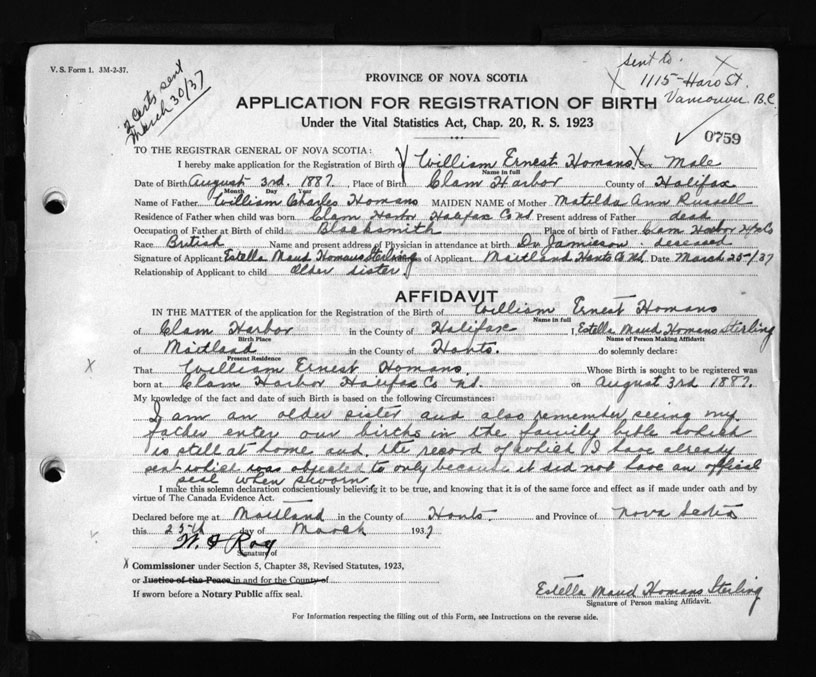 V. S. Form 1. 3M-2-37.
2 Certs sent
March 30/37
sent to.
1115-Haro St.
Vancouver B.C.
PROVINCE OF NOVA SCOTIA
APPLICATION FOR REGISTRATION OF BIRTH
Under the Vital Statistics Act, Chap. 20, R. S. 1923
0759
TO THE REGISTRAR GENERAL OF NOVA SCOTIA:
I hereby make application for the Registration of Birth of William Ernest Homans Sex Male
Name in full
Date of Birth August 3rd. 1887. Place of Birth Clam Harbor County of Halifax
Month Day Year
Name of Father William Charles Homans MAIDEN NAME of Mother Matilda Ann Russell
Residence of Father when child was born Clam Harbor Halifax Co NS. Present address of Father dead
Occupation of Father at Birth of child Blacksmith Place of birth of Father Clam Harbor Hfx Co
Race British Name and present address of Physician in attendance at birth Dr Jamieson. deceased
Signature of Applicant Estella Maud Homans Sterling of Applicant Maitland Hants Co NS. Date March 25-/37
Relationship of Applicant to child older sister
AFFIDAVIT
IN THE MATTER of the application for the Registration of the Birth of William Ernest Homans
Name in full
of Clam Harbor in the County of Halifax I, Estella Maud Homans Sterling
Birth Place Name of Person Making Affidavit
of Maitland in the County of Hants. do solemnly declare:
Present Residence
X That William Ernest Homans. Whose Birth is sought to be registered was
born at Clam Harbor Halifax Co NS. on August 3rd 1887.
My knowledge of the fact and date of such Birth is based on the following Circumstances:
I am an older sister and also remember seeing my
father enter our births in the family bible which
is still at home and the record of which I have already
sent which was objected to only because it did not have an official
seal when sworn
I make this solemn declaration conscientiously believing it to be true, and knowing that it is of the same force and effect as if made under oath and by
virtue of The Canada Evidence Act.
Declared before me at Maitland in the County of Hants. and Province of Nova Scotia
this 25th day of March 1937
Roy
Signature of
X Commissioner under Section 5, Chapter 38, Revised Statutes, 1923,
or Justice of the Peace in and for the County of
If sworn before a Notary Public affix seal.
Estella Maud Homans Sterling
Signature of Person making Affidavit.
For Information respecting the filling out of this Form, see Instructions on the reverse side.